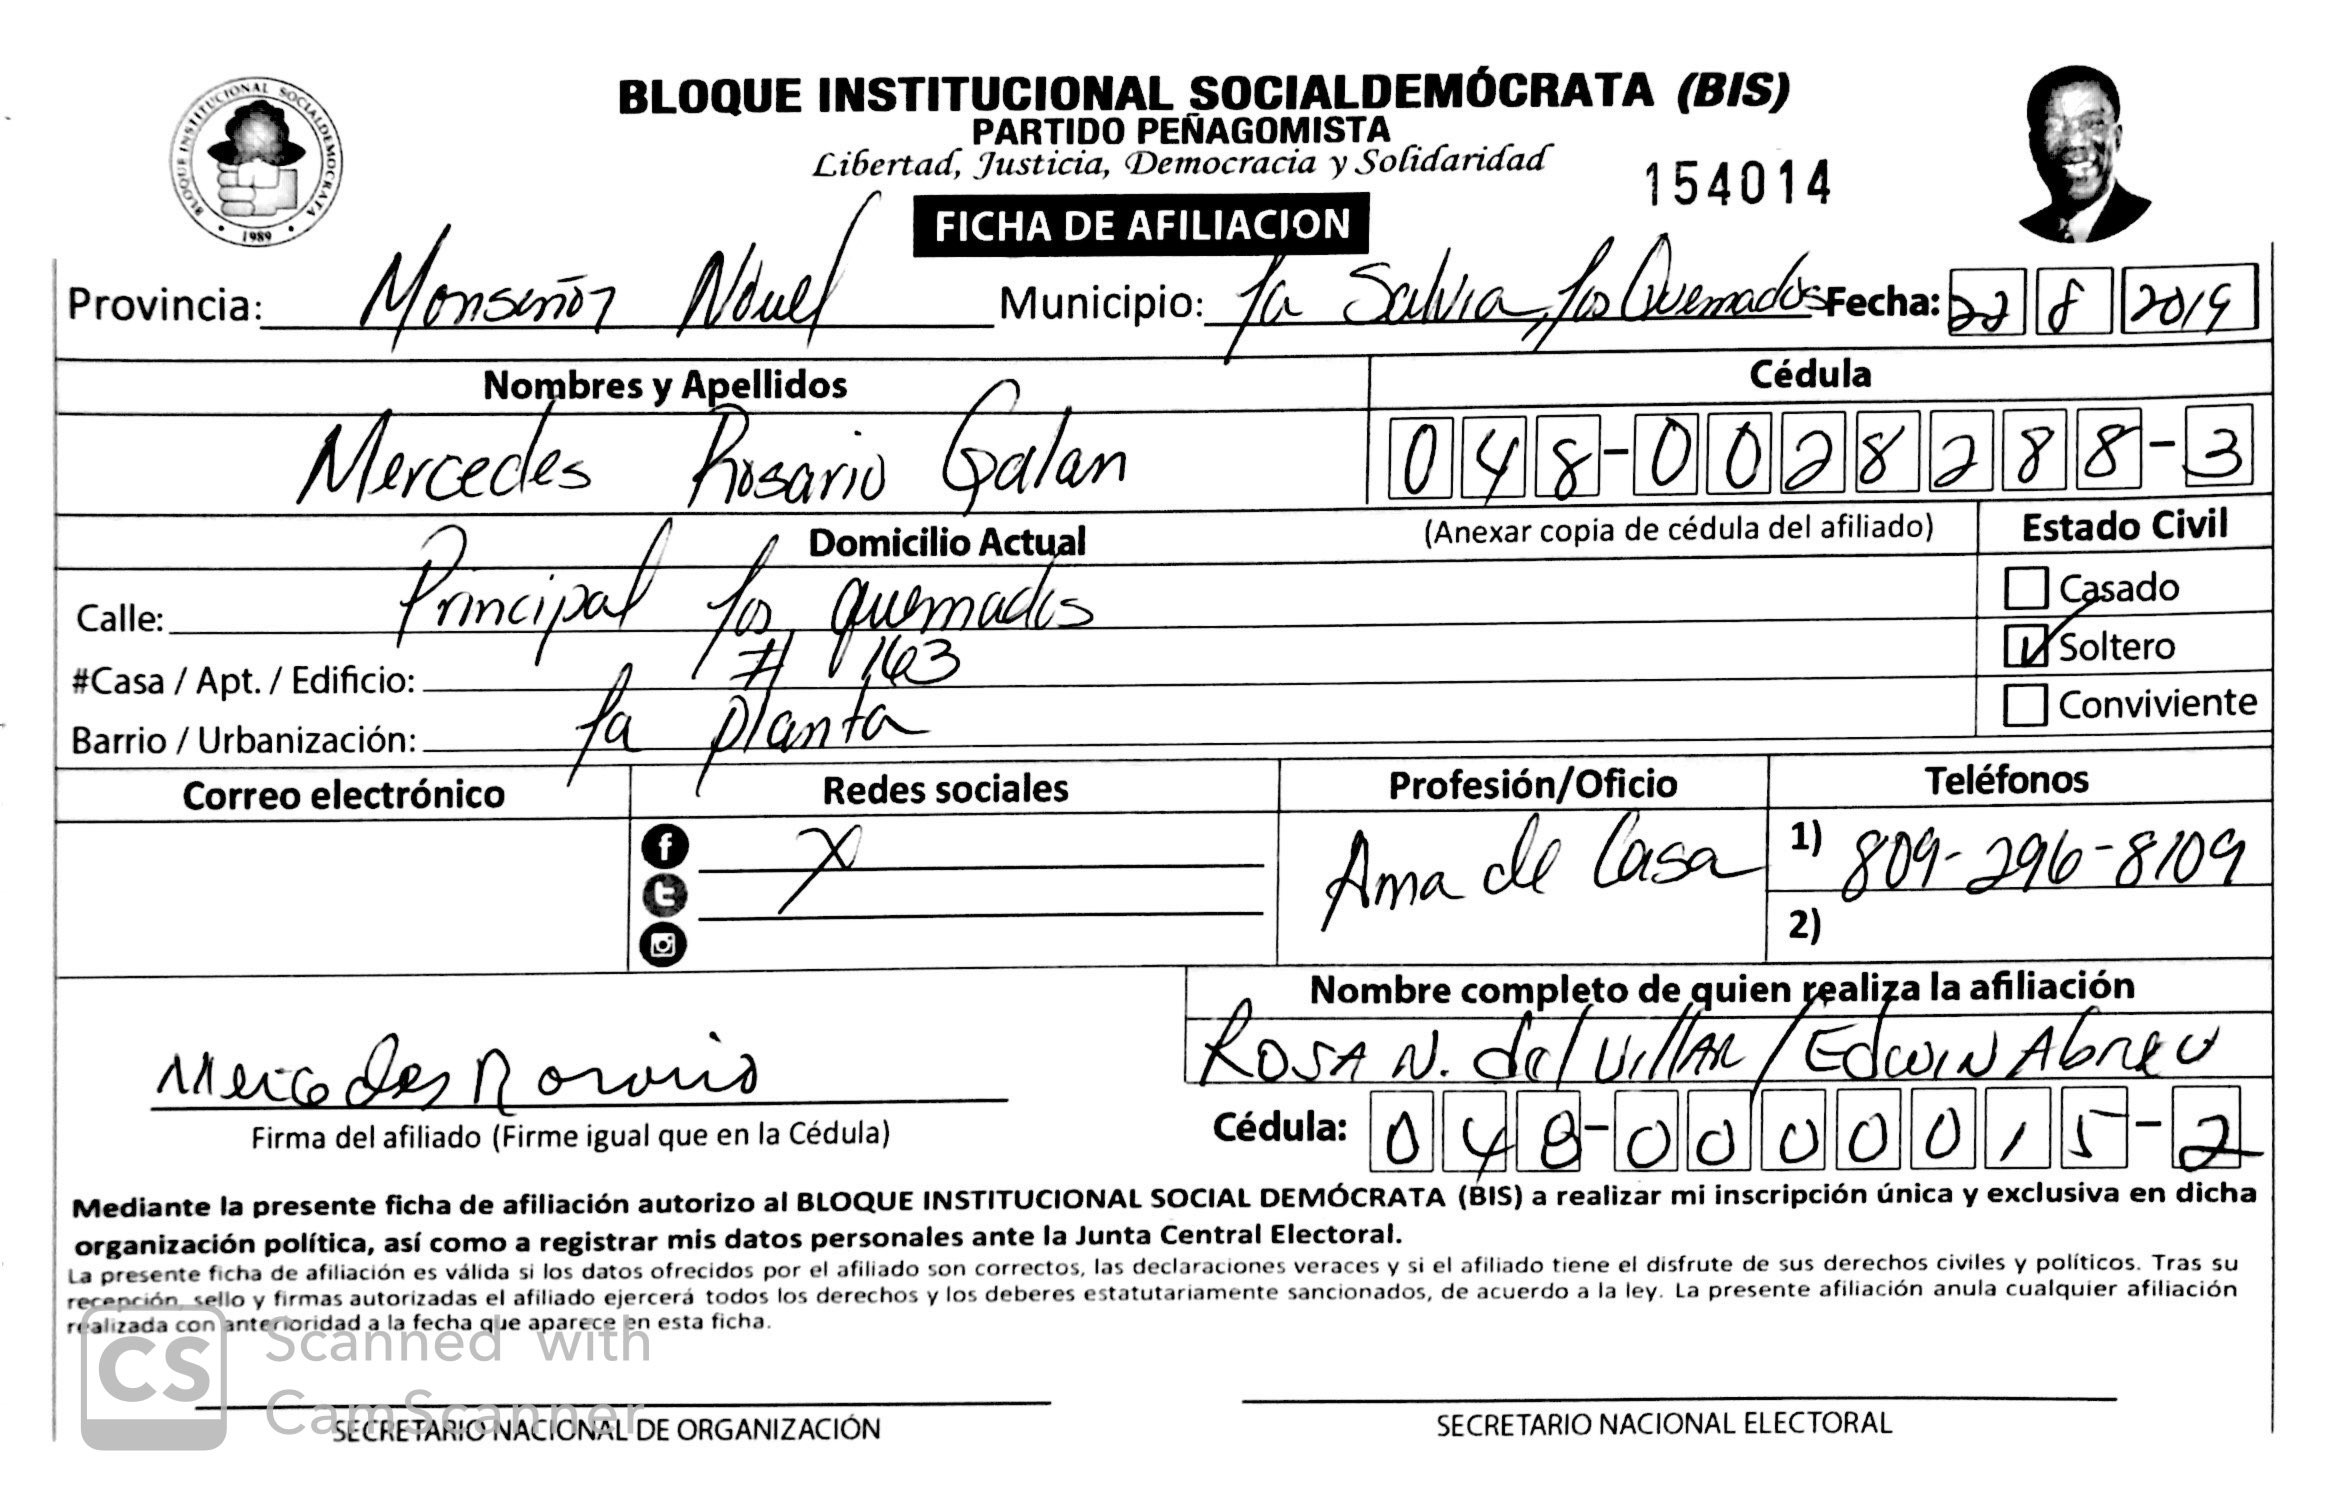 BLOQUE INSTITUCIONAL SOCIALDEMÓCRATA
1989
BLOQUE INSTITUCIONAL SOCIALDEMÓCRATA (BIS)
PARTIDO PEÑAGOMISTA
Libertad, Justicia, Democracia y Solidaridad
154014
FICHA DE AFILIACION
Provincia: Monseñor Nouel Municipio: La Salvia, Los Quemados Fecha: 22 8 2019
Nombres y Apellidos Cédula
Mercedes Rosario Galan 048-0028288-3
Domicilio Actual (Anexar copia de cédula del afiliado) Estado Civil
Calle: Principal Los quemados Casado
#Casa / Apt. / Edificio: # 163 Soltero
Barrio / Urbanización: La planta Conviviente
Correo electrónico Redes sociales Profesión/Oficio Teléfonos
X Ama de Casa 1) 809-296-8109
2)
Nombre completo de quien realiza la afiliación
Mercedes Rosario ROSA N. del VillAR / EdwIN AbReU
Firma del afiliado (Firme igual que en la Cédula) Cédula: 048-0000015-2
Mediante la presente ficha de afiliación autorizo al BLOQUE INSTITUCIONAL SOCIAL DEMÓCRATA (BIS) a realizar mi inscripción única y exclusiva en dicha
organización política, así como a registrar mis datos personales ante la Junta Central Electoral.
La presente ficha de afiliación es válida si los datos ofrecidos por el afiliado son correctos, las declaraciones veraces y si el afiliado tiene el disfrute de sus derechos civiles y políticos. Tras su
recepción, sello y firmas autorizadas el afiliado ejercerá todos los derechos y los deberes estatutariamente sancionados, de acuerdo a la ley. La presente afiliación anula cualquier afiliación
realizada con anterioridad a la fecha que aparece en esta ficha.
CS Scanned with
CamScanner
SECRETARIO NACIONAL DE ORGANIZACIÓN SECRETARIO NACIONAL ELECTORAL